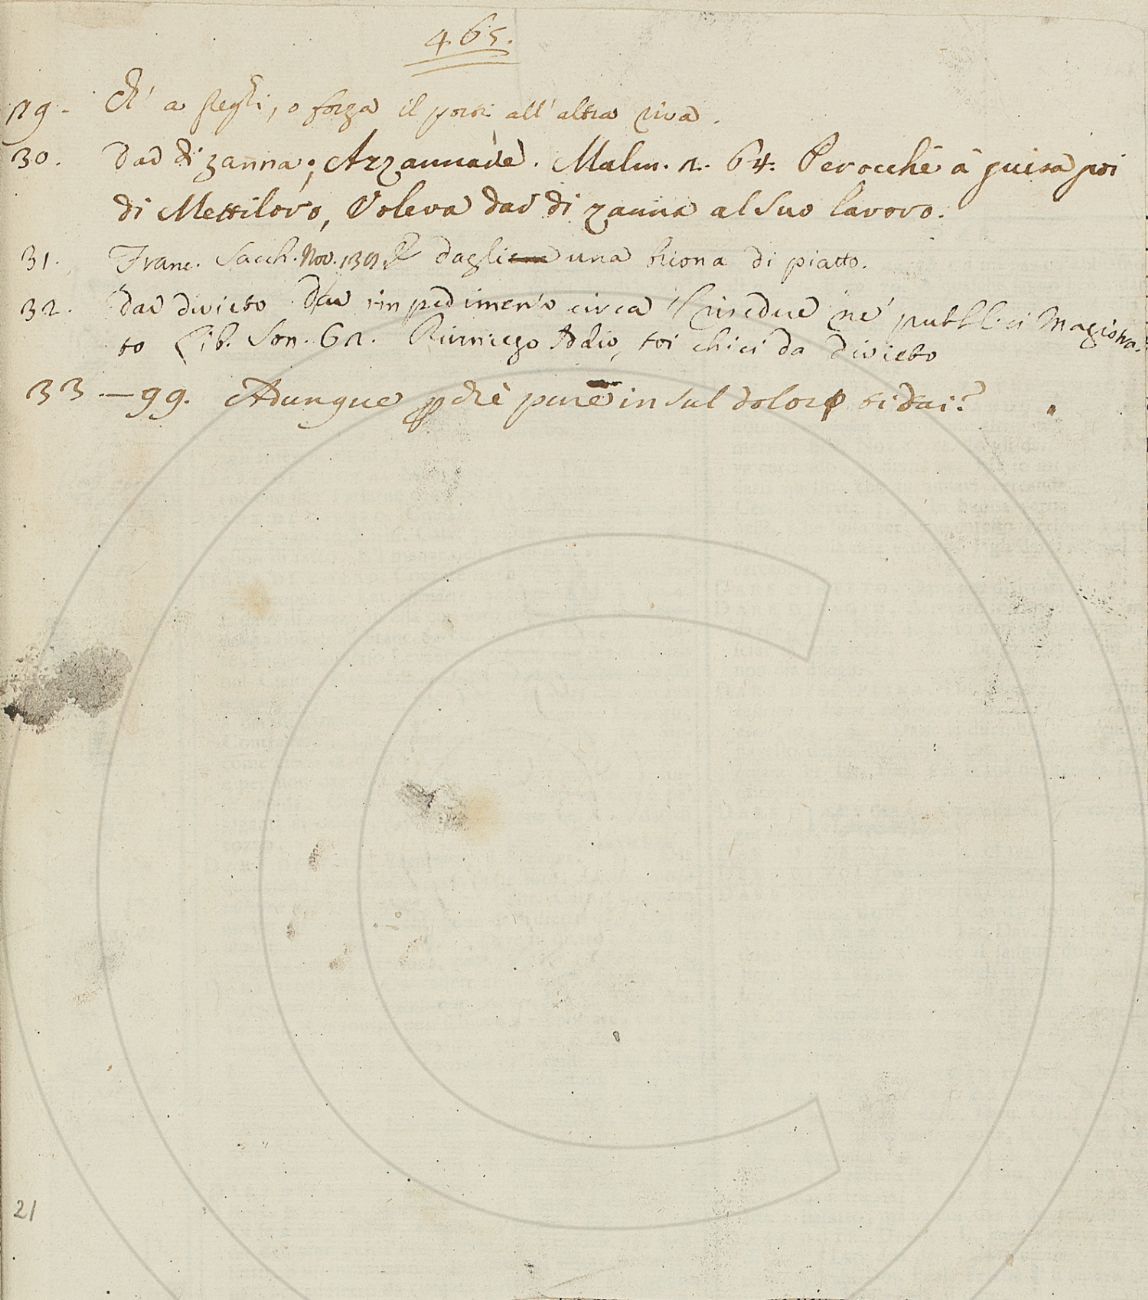 465.
29. Ch' a Flegli, o forza il porti all' altra riva.
30. Dar di zanna; Azzannare. Malm. 2. 64. Perocchè à guisa poi
di Mettiloro, Voleva dar di zanna al suo lavoro.
31. Franc. Sacch. Nov. dagli una buona di piatto.
32. Dar divieto Dar impedimento circa né pubblici Magistra-
to Lib. Son. 62. Rinniego Adio, toi chici da divieto
33.—99. Adunque pchè pure in sul dolor ti dai?
21